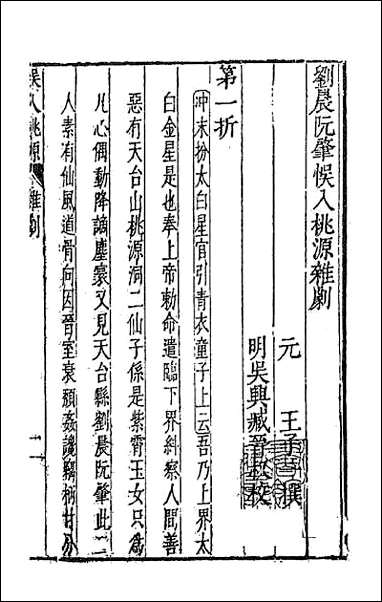 劉晨阮肇悞入桃源雜劇
元 王子一撰
明吳興臧晉叔校
第一折
冲末扮太白星官引青衣童子上云吾乃上界太
白金星是也奉上帝勅命遣臨下界糾察人間善
惡有天台山桃源洞二仙子係是紫霄玉女只爲
凡心偶動降謫塵寰又見天台縣劉晨阮肇此二
人素有仙風道骨向因晉室衰頹姦讒竊柄甘分
悞入桃源雜劇
一